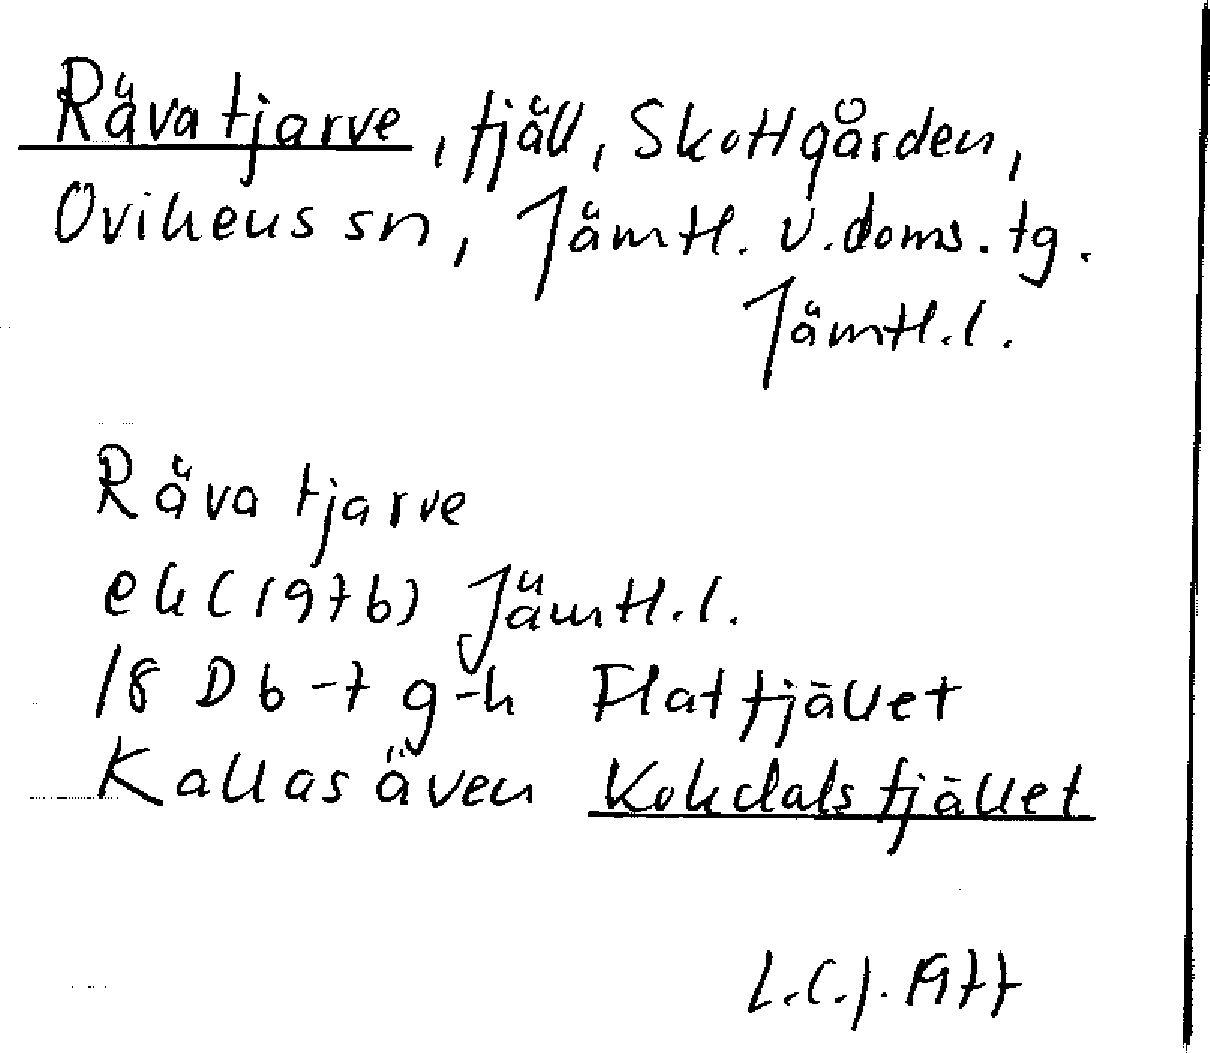 Rävatjarve, fjäll, Skottgården,
Ovikens sn, Jämtl. v. doms. tg.
Jämtl. l.
Räva tjarve
ek (1976) Jämtl. l.
18 D 6-7 g-h Flatfjället
Kallas även Kokdalsfjället
L.C.J. 1977